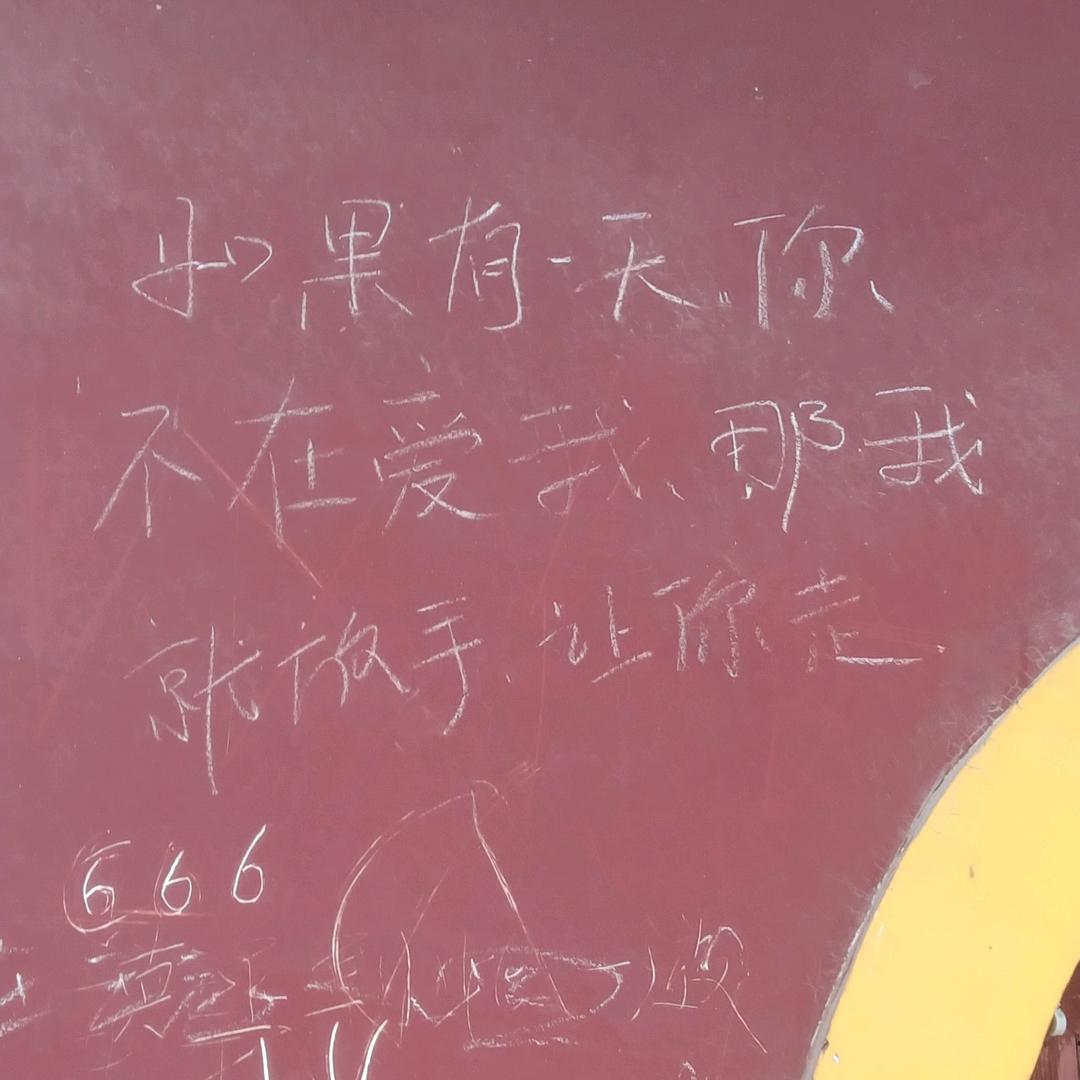 如果有一天、你、
不在爱我、那我
就放手、让你走
666